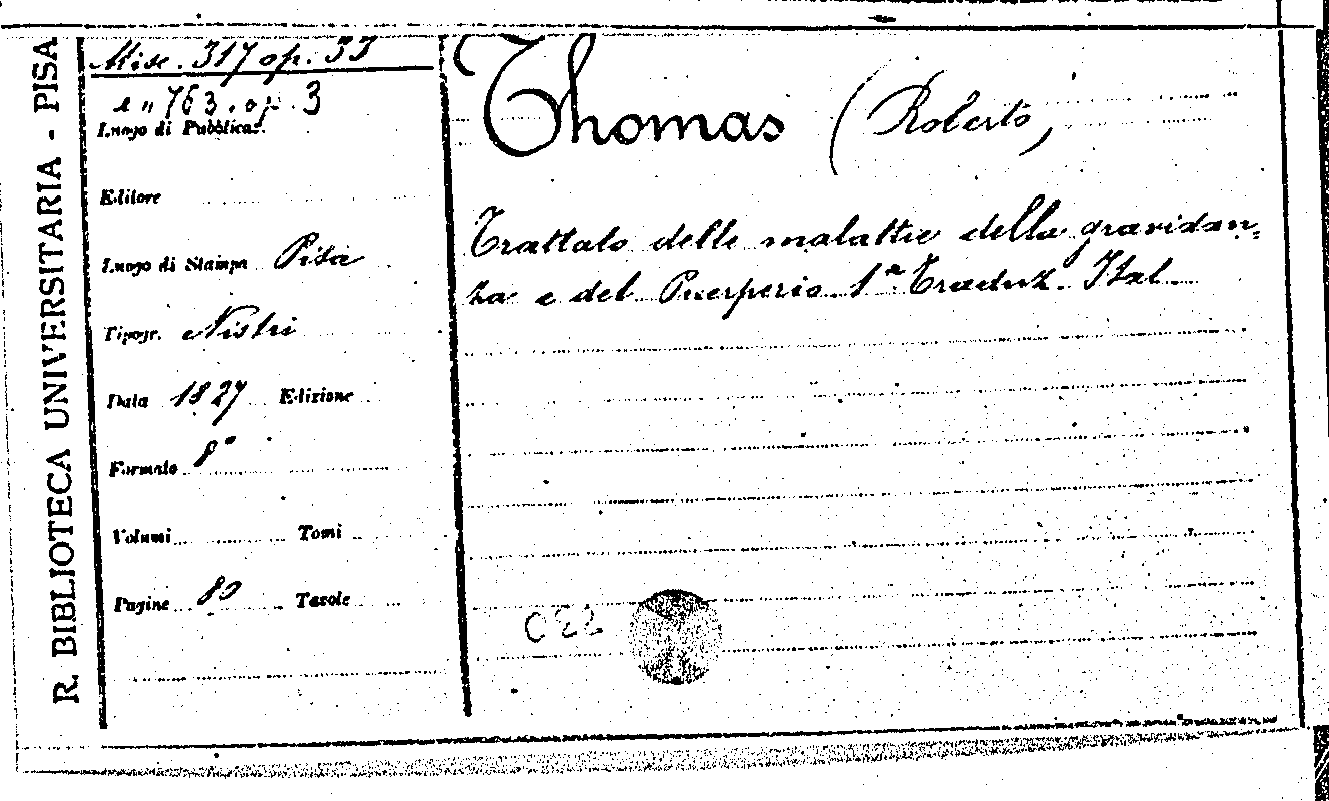 R. BIBLIOTECA UNIVERSITARIA - PISA
Misc. 317 op. 33
e " 763. op. 3
Luogo di Pubblicaz.
Editore
Luogo di Stampa Pisa
Tipogr. Nistri
Data 1827 Edizione
Formato 8°
Volumi Tomi
Pagine 80 Tavole
Thomas (Roberto)
Trattato delle malattie della gravidan=
za e del Puerperio. 1ª Traduz. Ital.